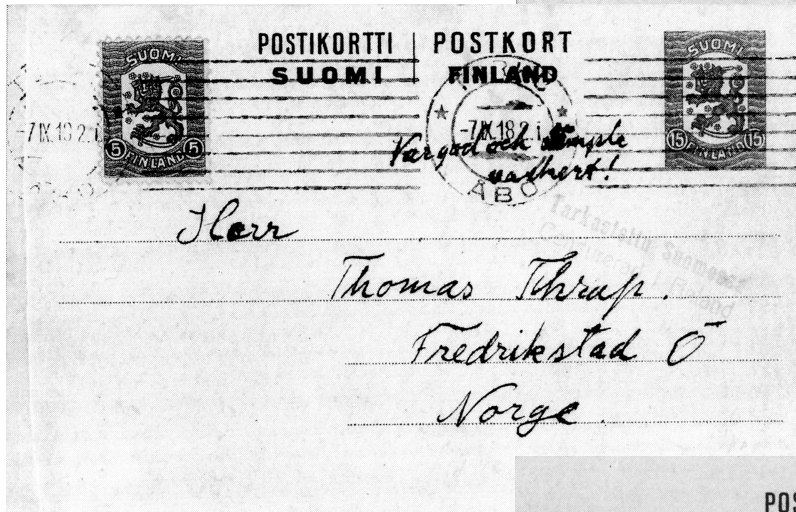 POSTIKORTTI | POSTKORT
SUOMI FINLAND
SUOMI
5 FINLAND 5
SUOMI
15 FINLAND 15
-7.IX.18 2.i
-7.IX.18 2.i
ÅBO
Var god och stämple
vackert!
Tarkastettu Suomessa
Censurerat i Finland
Herr
Thomas Thrap.
Fredrikstad Ö
Norge.
POS